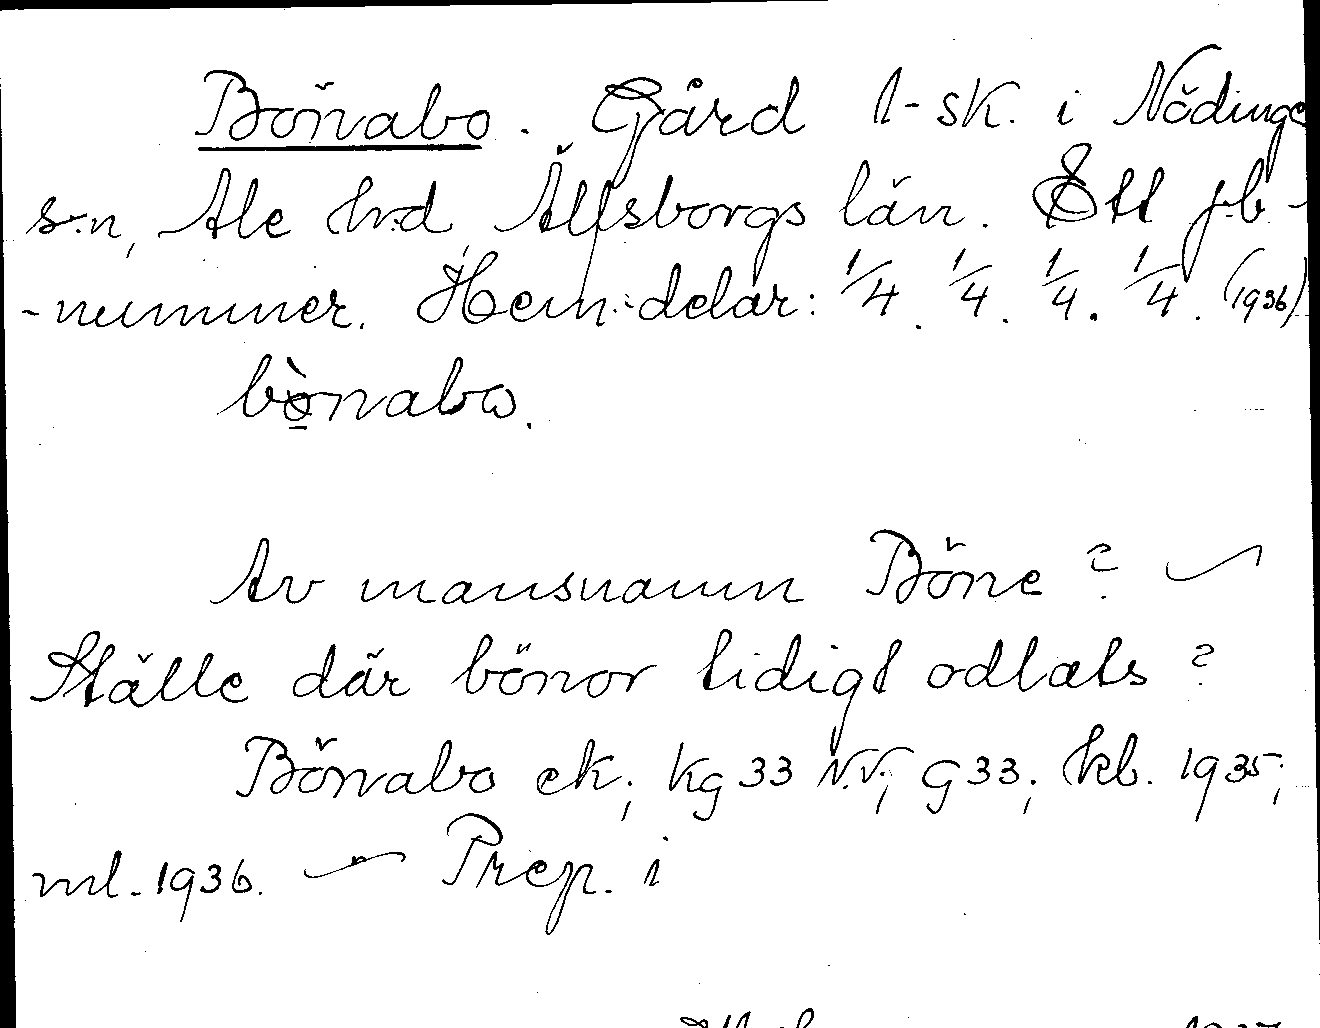 Bönabo. Gård 1-sk. i Nödinge
s:n, Ale hd, Älfsborgs län. Ett jb-
-nummer. Hem:delar: 1/4. 1/4. 1/4. 1/4. (1936)
bònabo.
Av mansnamn Böne? —
Ställe där bönor tidigt odlats?
Bönabo ek; Kg 33 N.V; G 33; kb. 1935;
ml. 1936. — Prep. i